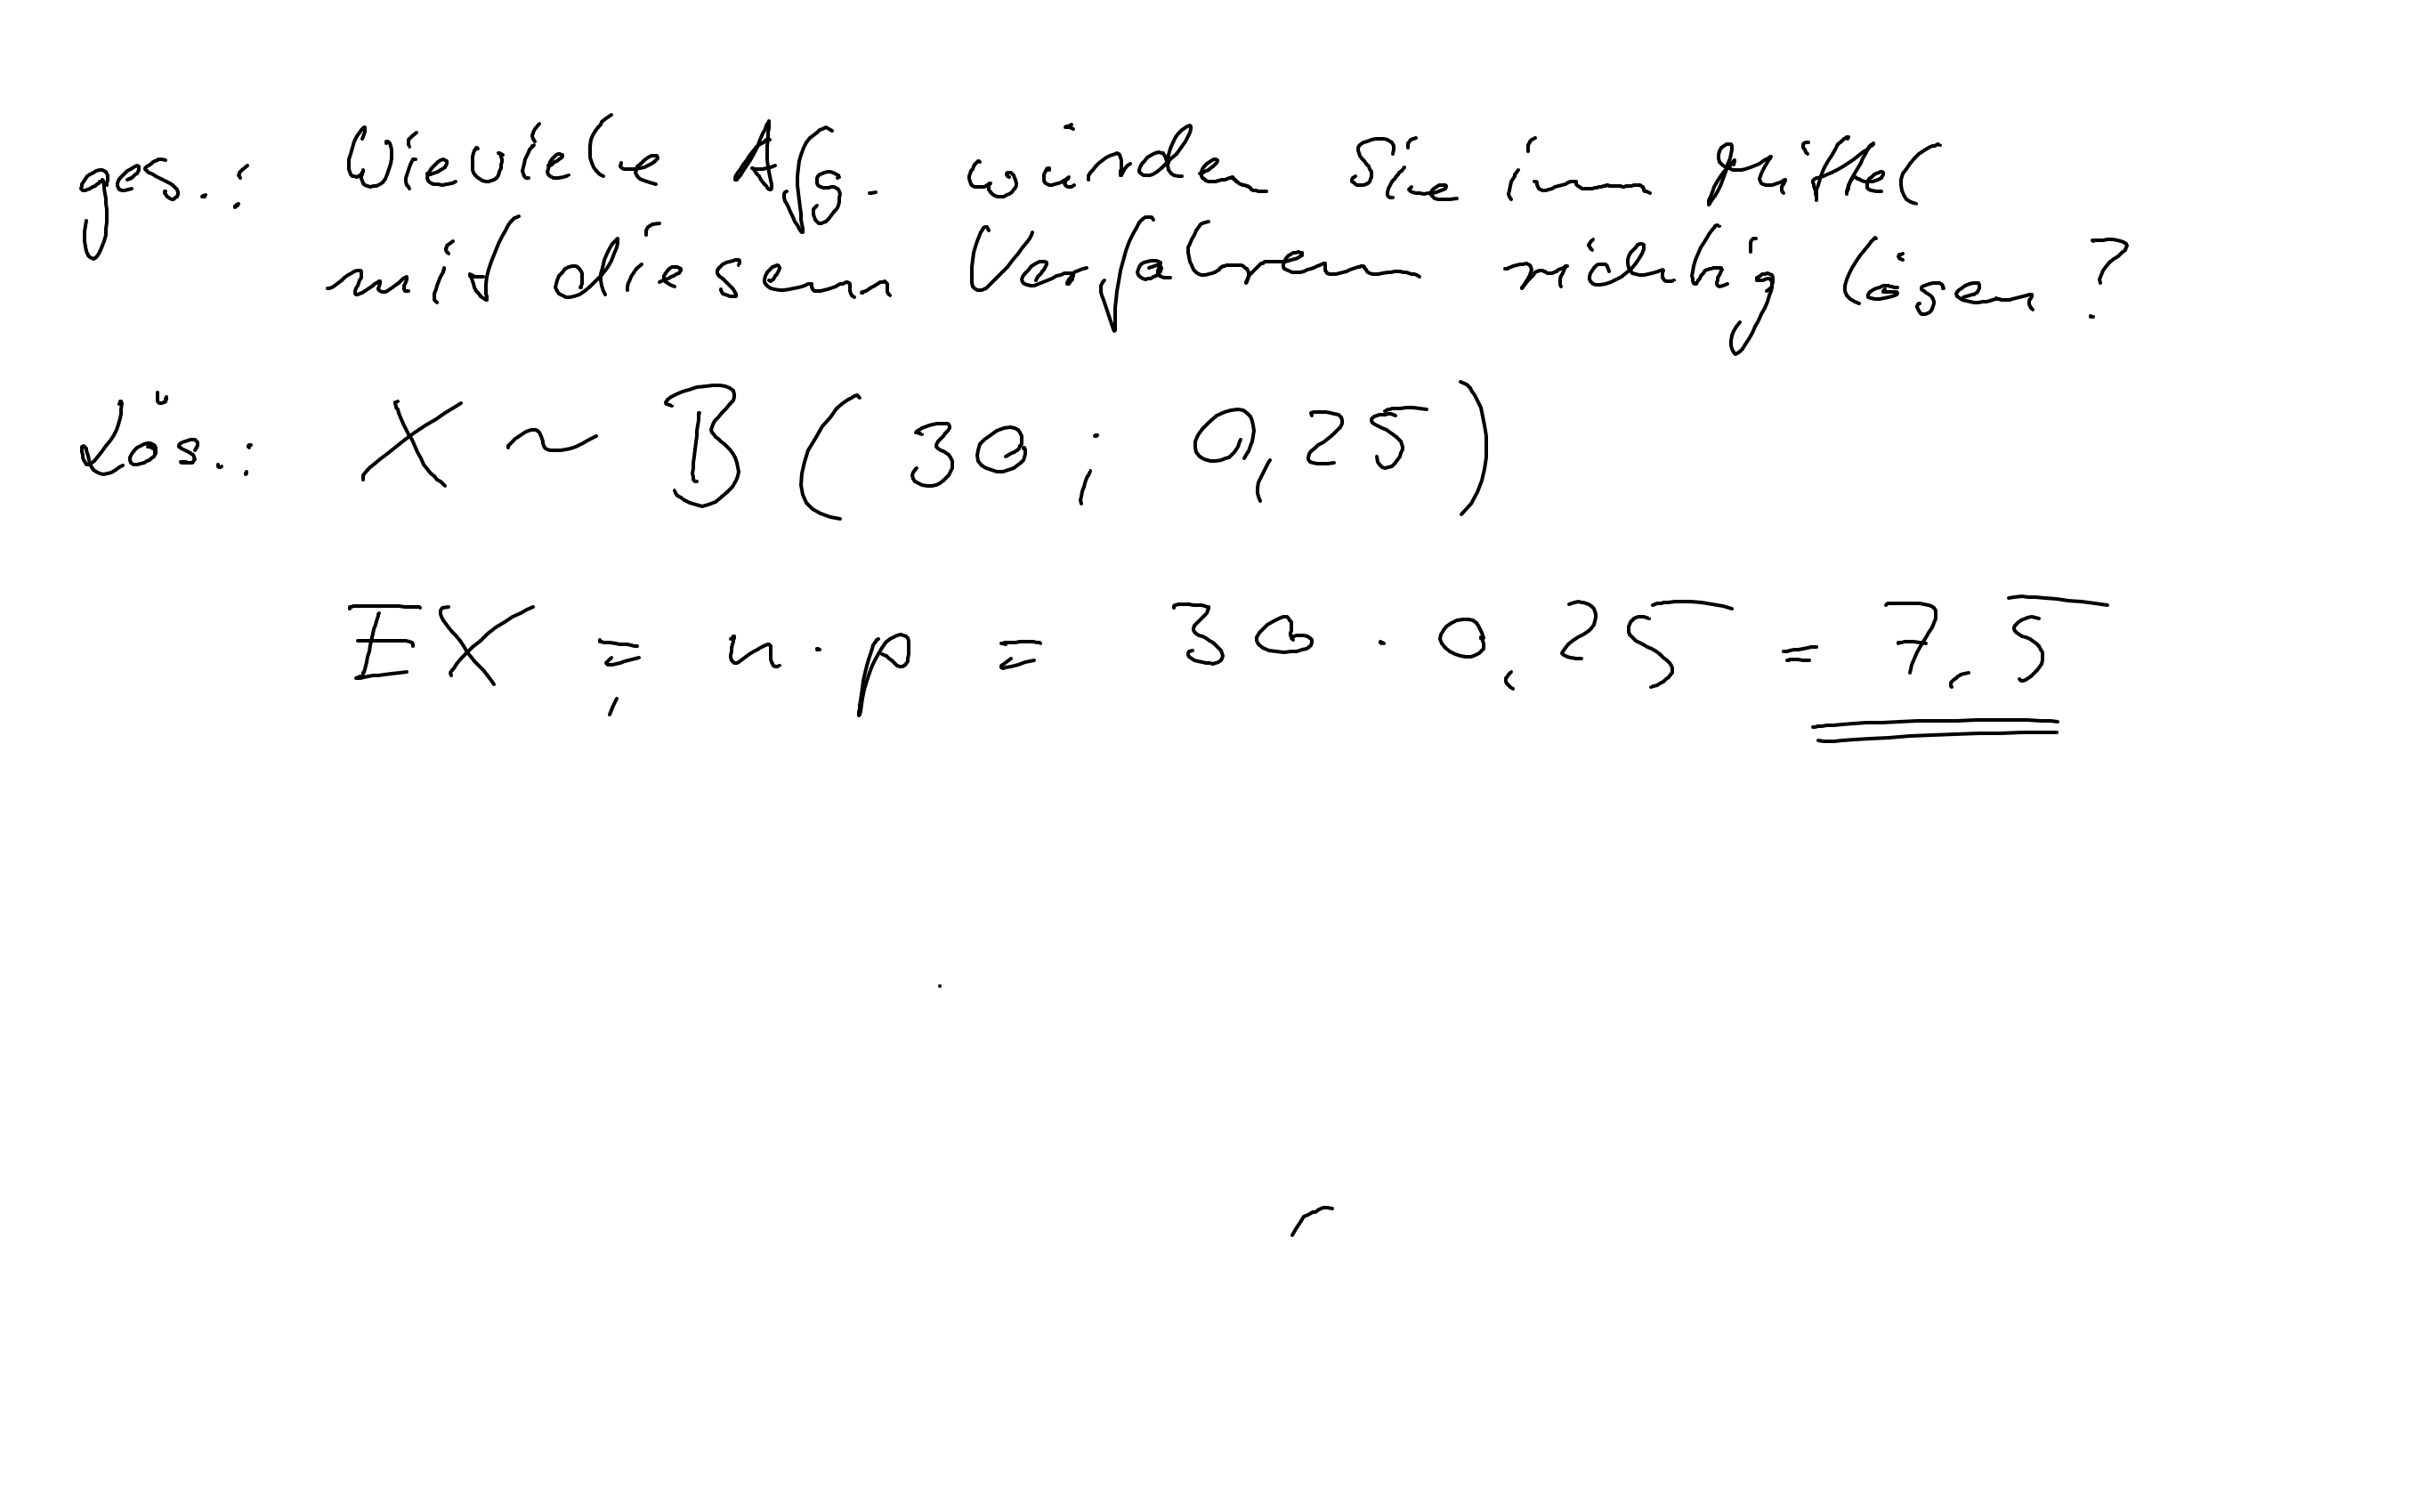 ges.: Wieviele Afg. würden Sie im Mittel
mit diesem Verfahren richtig lösen?
Lös.: X ~ B(30; 0,25)
EX = n · p = 30 · 0,25 = 7,5